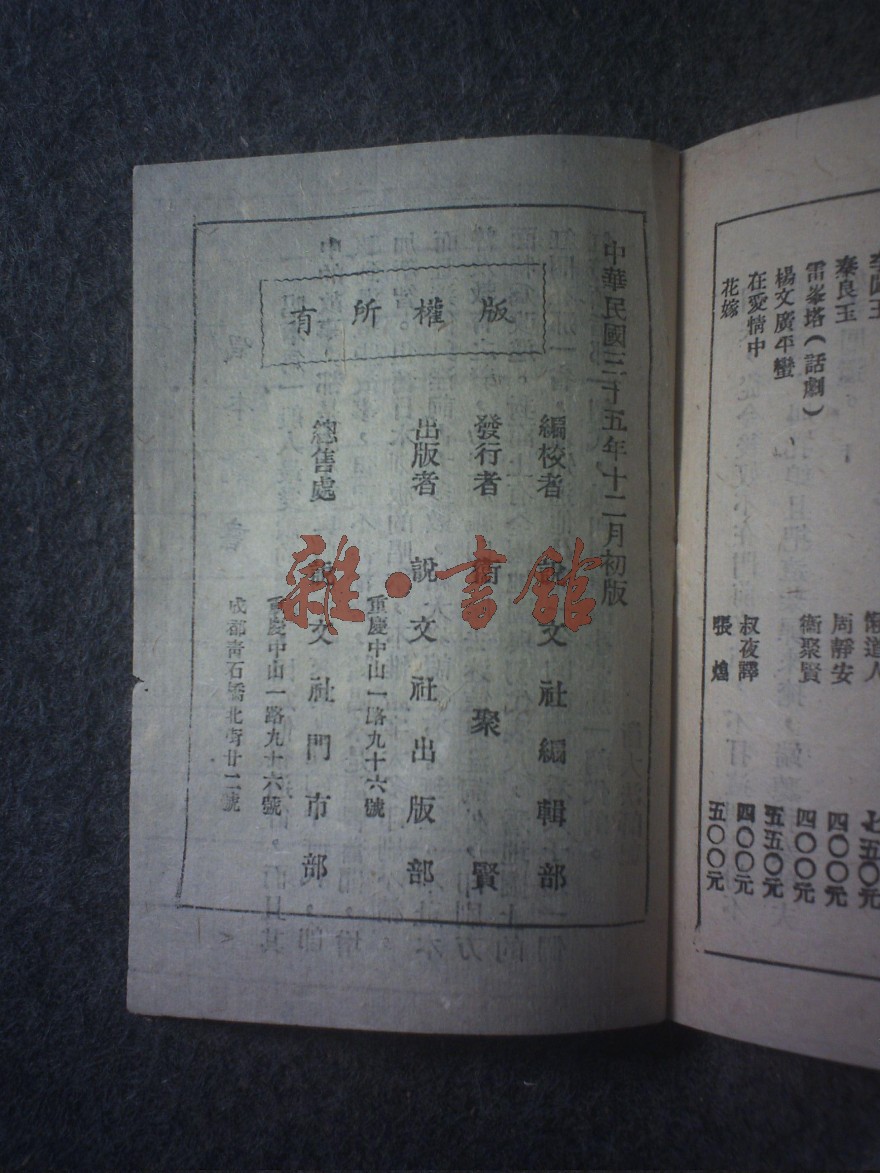 李師王
秦良玉
雷峯塔（話劇）
楊文廣平蠻
在愛情中
花嫁
懶道人
周靜安
衞聚賢
叔夜譯
張煌
七五〇元
四〇〇元
四〇〇元
五五〇元
四〇〇元
五〇〇元
中華民國三十五年十二月初版
版權所有
編校者 說文社編輯部
發行者 衞聚賢
出版者 說文社出版部
重慶中山一路九十六號
總售處 說文社門市部
重慶中山一路九十六號
成都青石橋北街廿二號
雜·書館